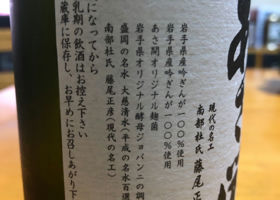 あさ開
現代の名工
南部杜氏 藤尾正
岩手県産吟ぎんが一〇〇%使用
岩手県産吟ぎんが一〇〇%使用
あさ開オリジナル麹菌
岩手県オリジナル酵母ジョバンニの調
盛岡の名水 大慈清水(平成の名水百選
南部杜氏 藤尾正彦(現代の名工)
になってから
乳期の飲酒はお控え下さい
蔵庫に保存し、お早めにお召しあがり下